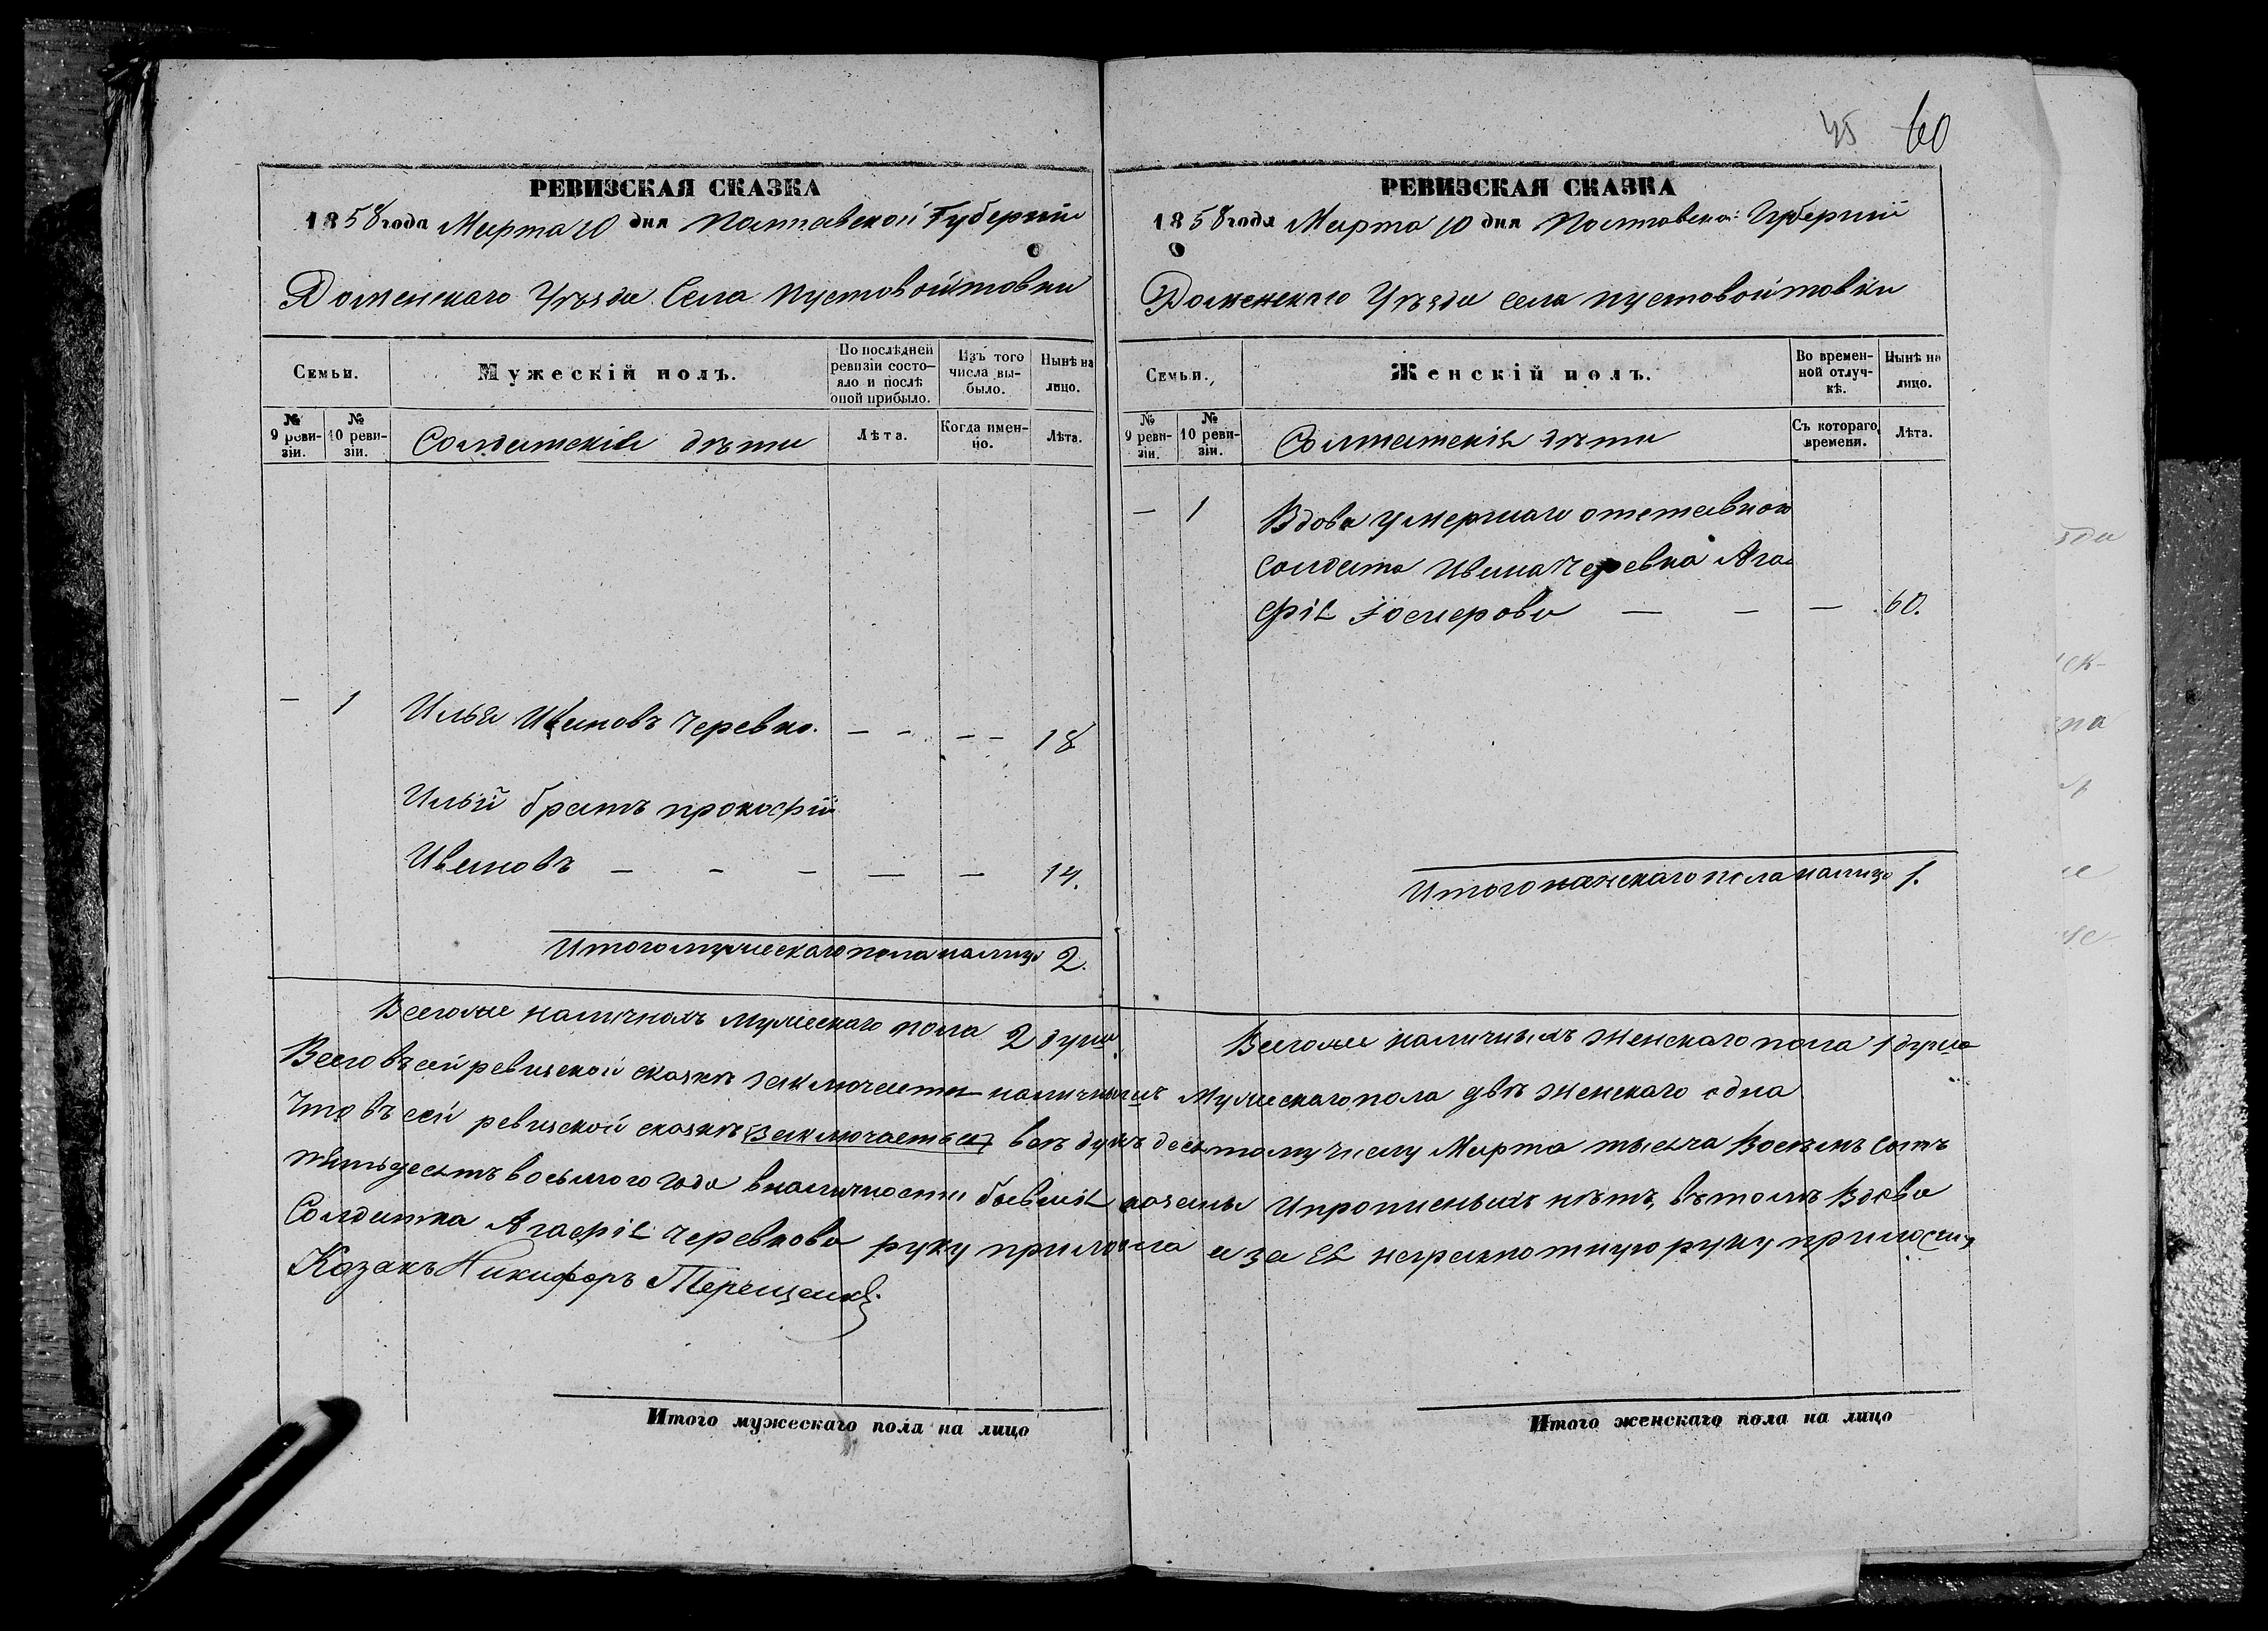 45 60
РЕВИЗСКАЯ СКАЗКА
1858 года Марта 10 дня Полтавской Губерніи
Роменскаго Уѣзда Села Пустовойтовки
Семьи.
Мужескій полъ.
По послѣдней ревизіи состояло и послѣ оной прибыло.
Изъ того числа выбыло.
Нынѣ на лицо.
№ 9 ревизіи.
№ 10 ревизіи.
Солдатскія дѣти
Лѣта.
Когда именно.
Лѣта.
— 1 Илья Ивановъ Черевко. — — — — 18
Ильи братъ прокофій
Ивановъ — — — — — 14.
Итого мужескаго пола налицо 2.
РЕВИЗСКАЯ СКАЗКА
1858 года Марта 10 дня Полтавской Губерніи
Роменскаго Уѣзда села пустовойтовки
Семьи.
Женскій полъ.
Во временной отлучкѣ.
Нынѣ на лицо.
№ 9 ревизіи.
№ 10 ревизіи.
Солдатскія дѣти
Съ котораго времени.
Лѣта.
— 1 Вдова умершаго отставной
солдата Ивана Черевка Ага
фія — — — 60.
Итого женскаго пола налицо 1.
Всего наличныхъ мужескаго пола 2 душ. Всего наличныхъ женскаго пола 1 душа
Всего въ сей ревизской сказкѣ заключается наличныхъ мужескаго пола двѣ женскаго одна
Что въ сей ревизской сказкѣ заключается всѣ душъ десятому числу Марта тысяча восемь сотъ
пятьдесятъ восьмого года в наличности и прописныхъ нѣтъ, въ томъ Вдова
Солдатка Агафія Черевкова руку приложила а за ея неграмотную руку приложилъ
Козакъ Никифоръ Терещенко
Итого мужескаго пола на лицо
Итого женскаго пола на лицо